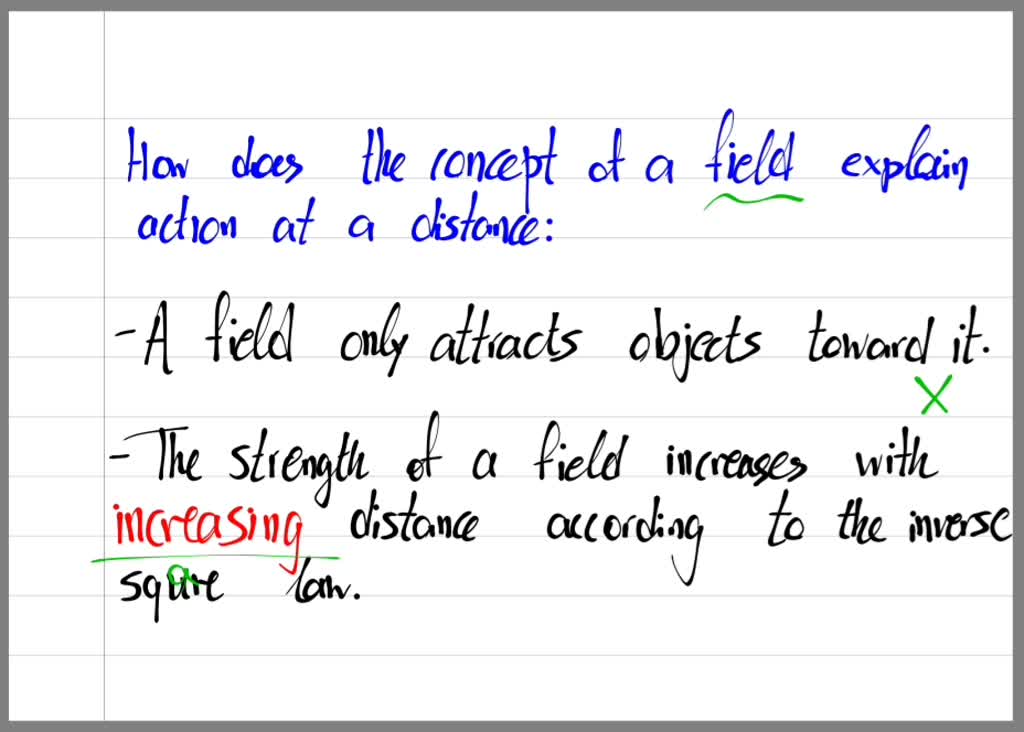 How does the concept of a field explain
action at a distance:
- A field only attracts objects toward it.
X
- The strength of a field increases with
increasing distance according to the inverse
square law.